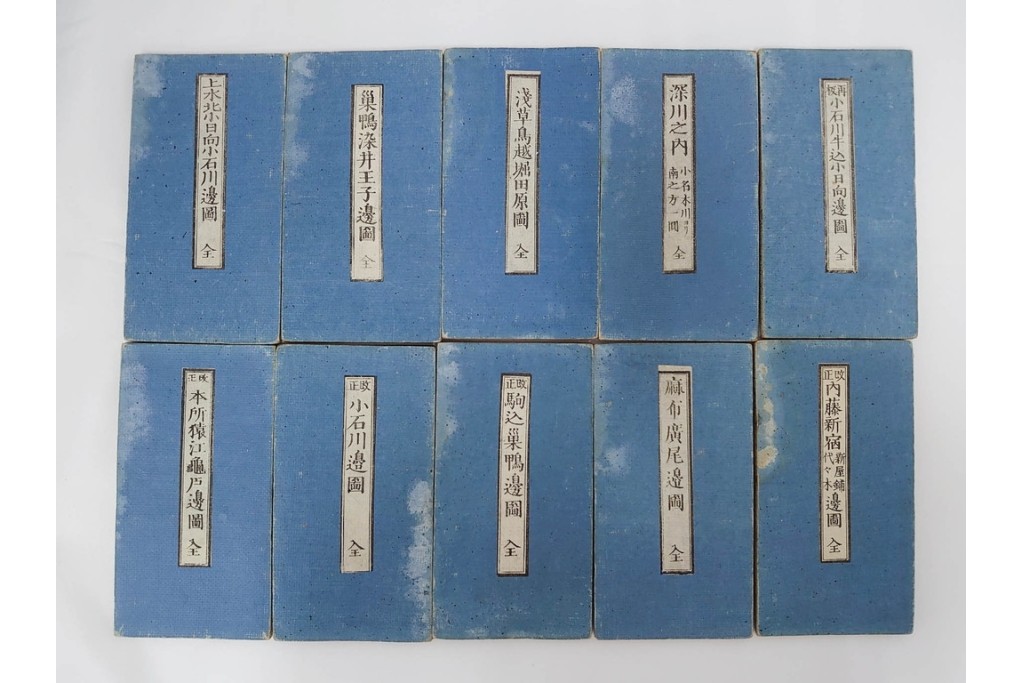 上水北小日向小石川邊圖 全
巣鴨染井王子邊圖 全
浅草鳥越堀田原圖 全
深川之内 全
小名木川ヨリ
南之方一圓
再板
小石川牛込小日向邊圖 全
改正
本所猿江龜戸邊圖 全
改正
小石川邊圖 全
改正
駒込巣鴨邊圖 全
麻布廣尾邊圖 全
改正
内藤新宿
新屋鋪
代々木
邊圖 全